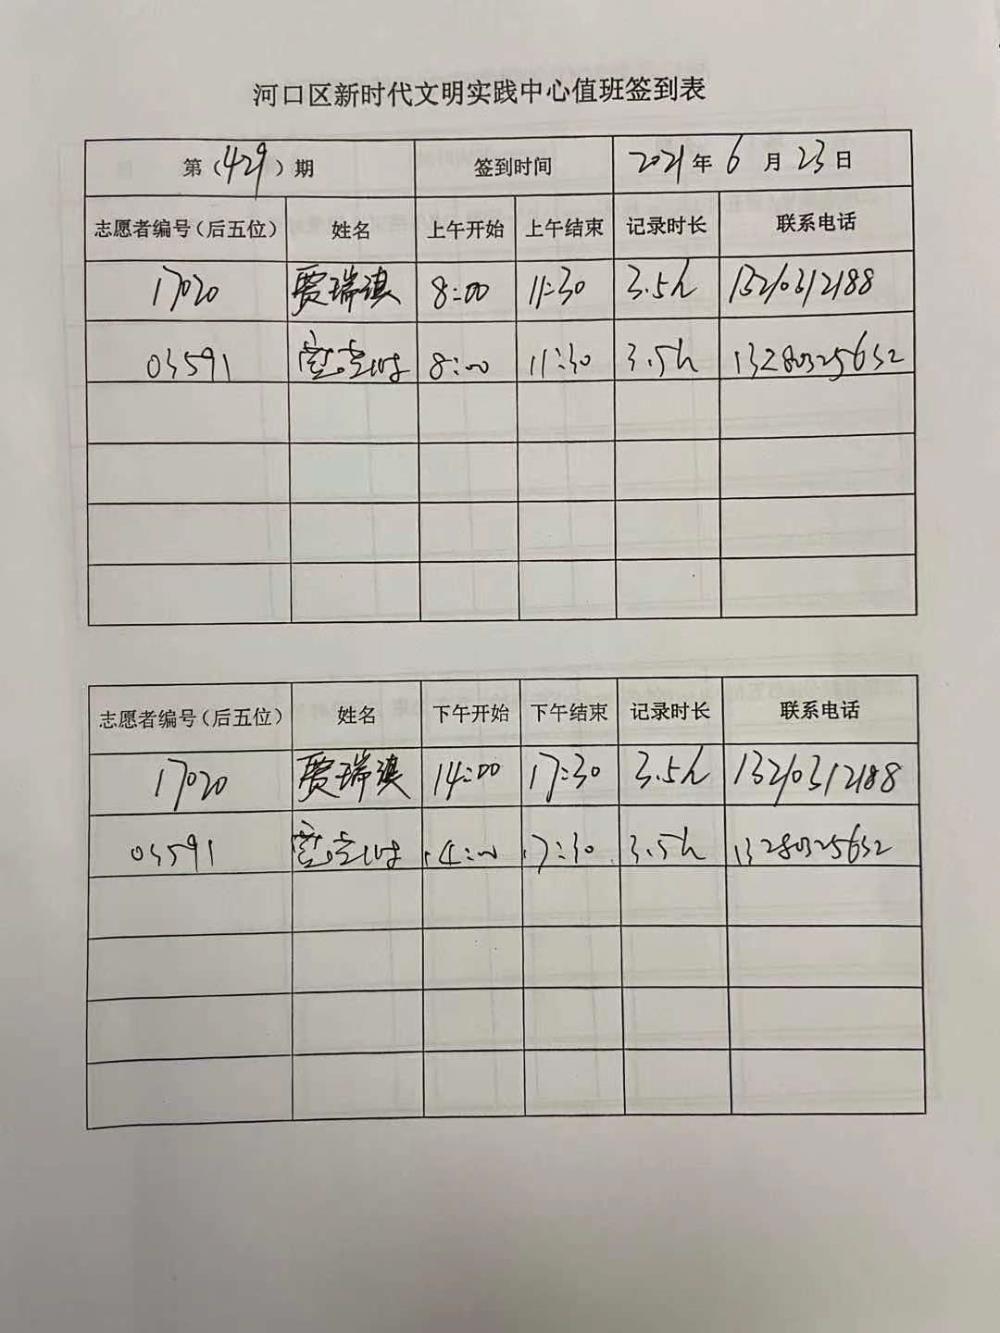 河口区新时代文明实践中心值班签到表
第（429）期 签到时间 2021年6月23日
志愿者编号（后五位） 姓名 上午开始 上午结束 记录时长 联系电话
17020 贾瑞淇 8:00 11:30 3.5h 13210312188
03591 8:00 11:30 3.5h 13280325632
志愿者编号（后五位） 姓名 下午开始 下午结束 记录时长 联系电话
17020 贾瑞淇 14:00 17:30 3.5h 13210312188
03591 14:00 17:30 3.5h 13280325632